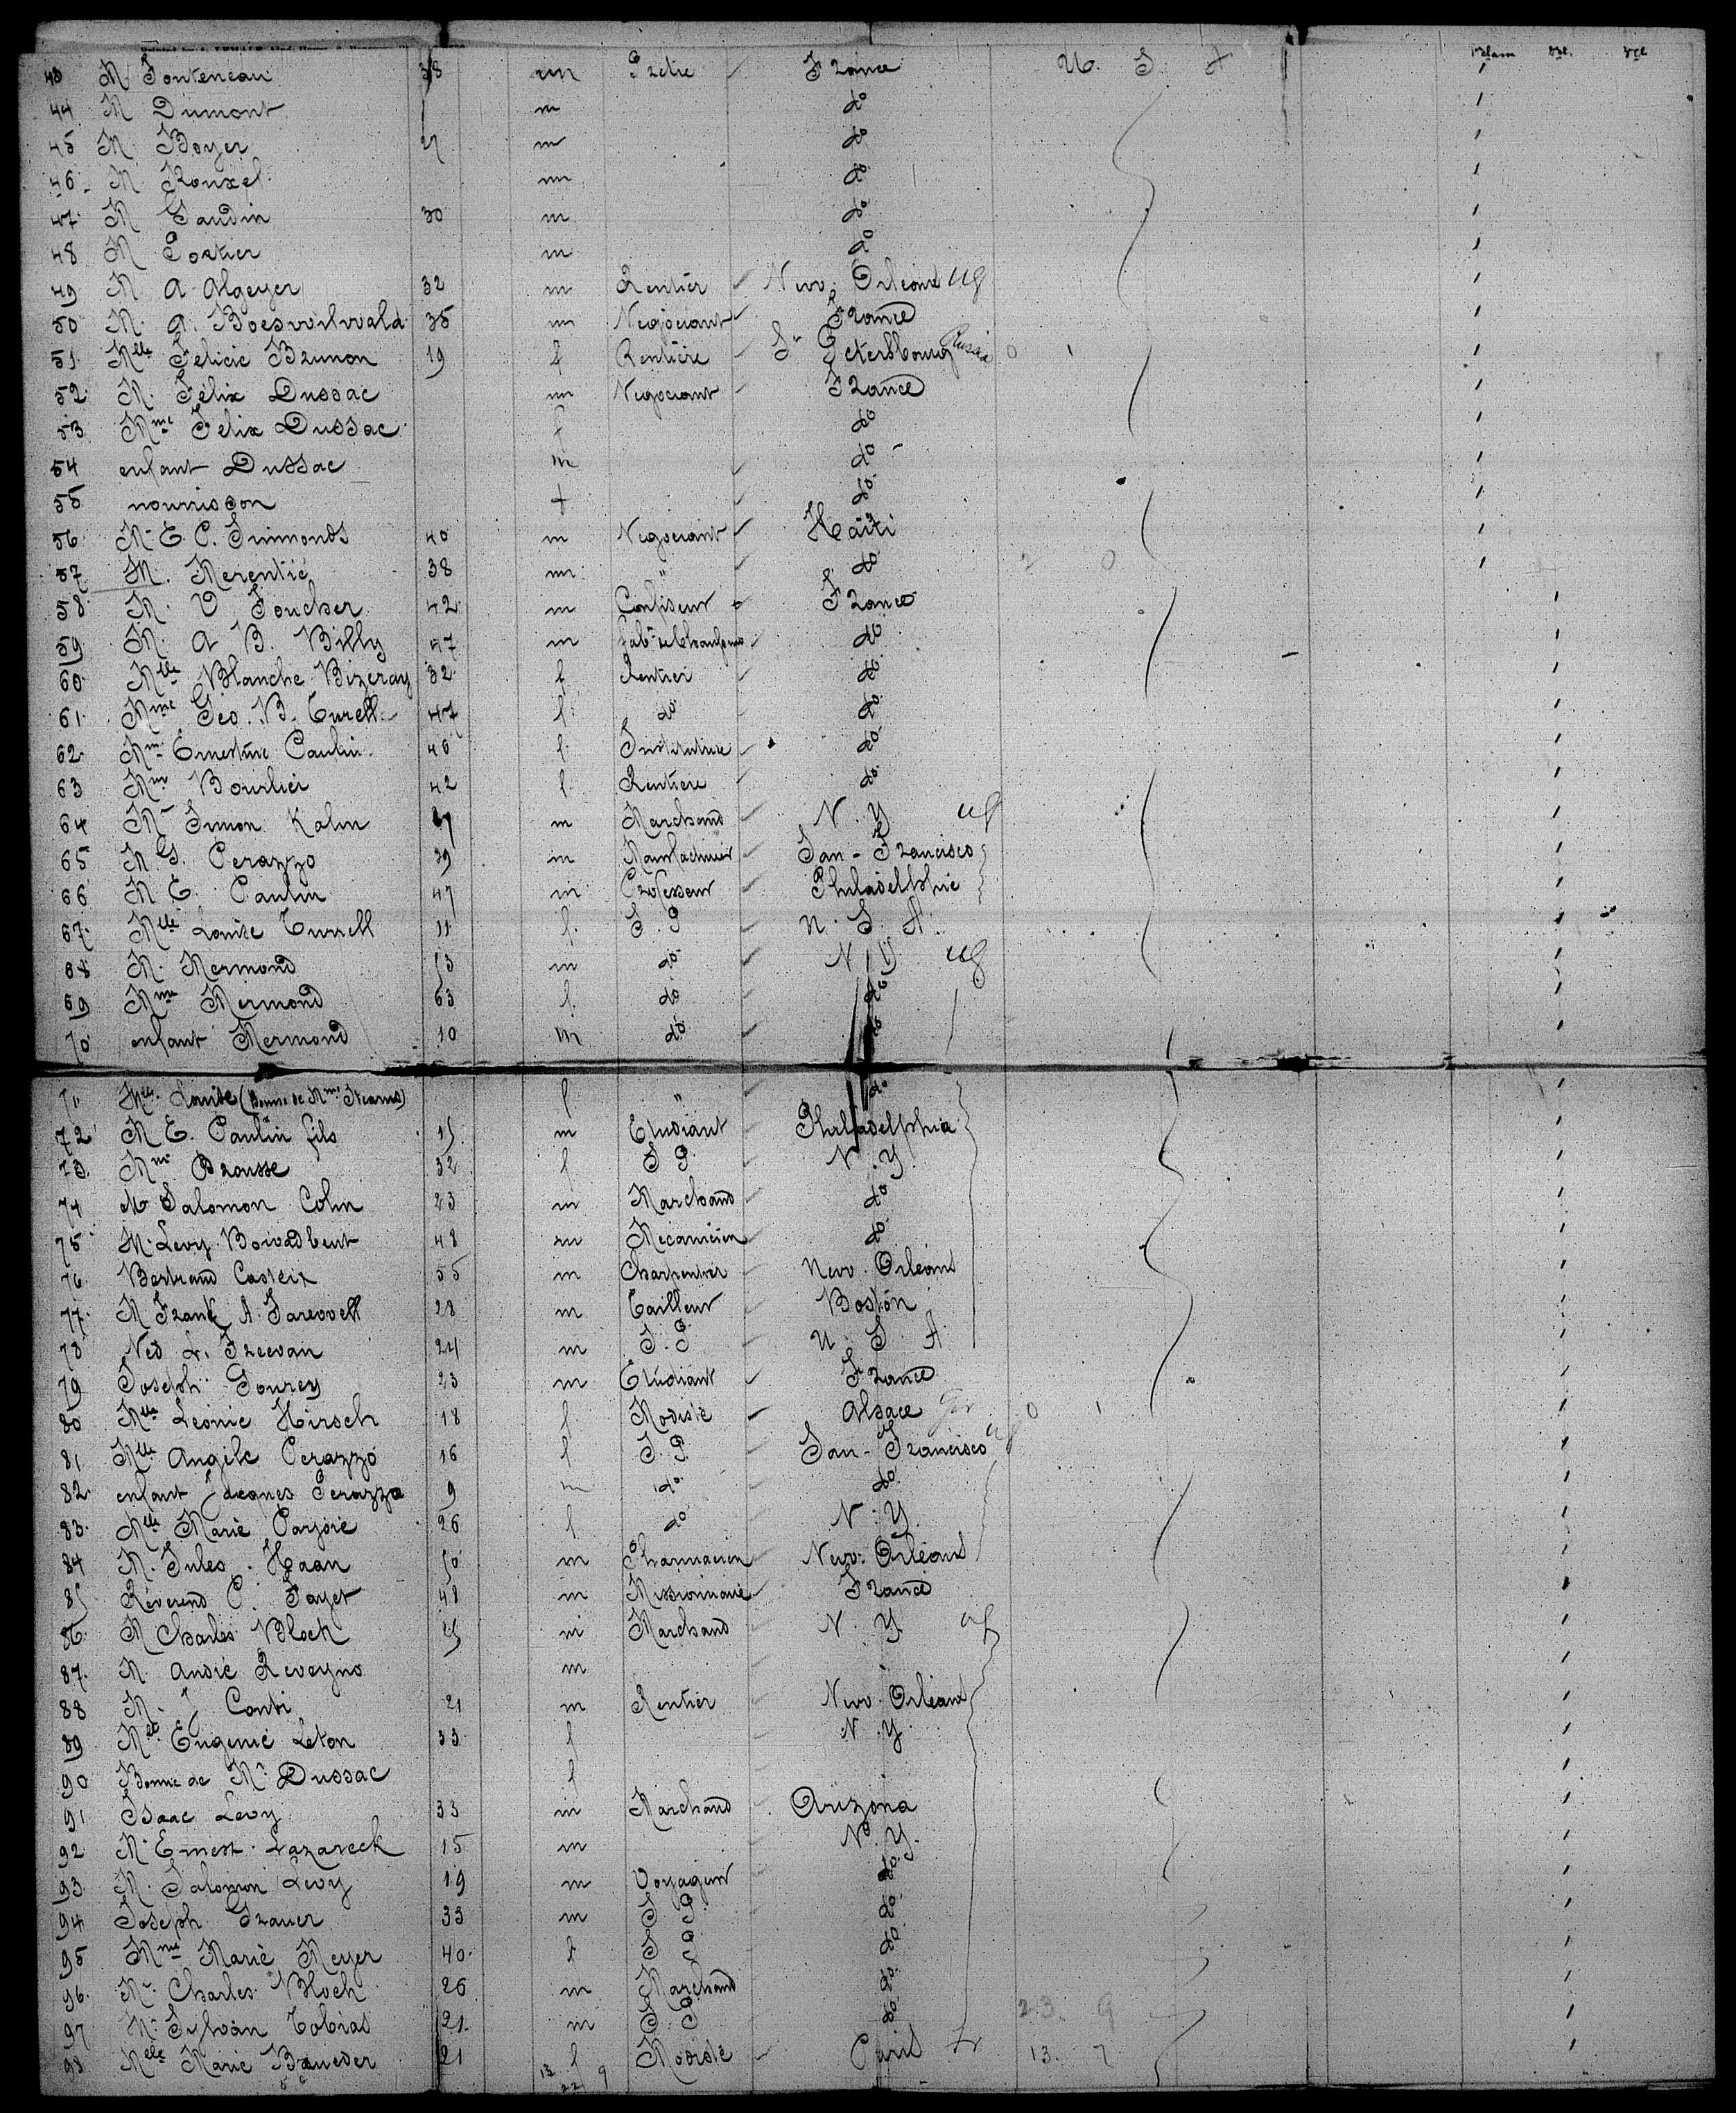 43 M Fonteneau 38 m Prêtre France U. S. A
44 M Dumont m do
45 M Boyer 27 m do
46 M Rouxel m do
47 M Gaudin 30 m do
48 M Portier m do
49 M A. Algeyer 32 m Rentier New Orleans
50 M. A. Boeswilwald 35 m Negociant France
51 Mlle Félicie Brunon 19 f Rentière St Petersbourg Russia 0 1
52 M. Félix Dussac m Negociant France
53 Mme Félix Dussac f do
54 enfant Dussac m do
55 nourisson f do
56 M. E. C. Simmonds 40 m Negociant Haïti
57 M. Merentié 38 m " do 2 0
58 M. V Foucher 42 m Confiseur France
59 M. A B. Billy 47 m do
60 Mlle Blanche Bizeray 32 f Rentier do
61 Mme Geo. B. Turell 47 f do do
62 Mme Ernestine Paulin 46 f Institutrice do
63 Mme Bourlier 42 f Rentière do
64 Mr Simon Kahn m Marchand N. Y
65 M G. Perazzo 39 m Manufacturier San-Francisco
66 M E. Paulin 47 m Professeur Philadelphie
67 Mlle Louise Turrell 11 f S. P U. S. A.
68 M. Mermond m do N. Y
69 Mme Mermond 63 f do do
70 enfant Mermond 10 m do do
71 Mlle Louise (Bonne de Mme Stearns) f " do
72 M E. Paulin fils 15 m Etudiant Philadelphia
73 Mme Brousse 32 f S P N. Y.
74 M Salomon Cohn 23 m Marchand do
75 M. Levy 48 m Mecanicien do
76 Bertrand Casteix 55 m Charpentier New Orleans
77 M Frank A. Farewell 28 m Tailleur Boston
78 Ned L. 24 m S. P U. S. A
79 Joseph Gourey 23 m Etudiant France
80 Mlle Léonie Hirsch 18 f Modiste Alsace 0 1
81 Mlle Angèle Perazzo 16 f S P San-Francisco
82 enfant Perazzo 9 m do do
83 Mlle Marie 26 f do N. Y.
84 M. Jules Haan 50 m Pharmacien New Orleans
85 Révérend P. 48 m Missionnaire France
86 M Charles Bloch m Marchand N. Y
87 M. André m
88 M. J 21 m Rentier New Orleans
89 Mlle Eugenie Leton 33 f N. Y
90 Bonne de Mr Dussac f
91 Isaac Levy 33 m Marchand Arizona
92 M. Ernest Lazareck 15 m N. Y.
93 M. Salomon Levy 19 m Voyageur do
94 Joseph 33 m S P do
95 Mme Marie Meyer 40 f S P do
96 Mr Charles Bloch 26 m Marchand do
97 M. Sylvain Tobias 21 m S. P do 23 9
98 Mlle Marie 21 f Modiste Paris Fr 13 7